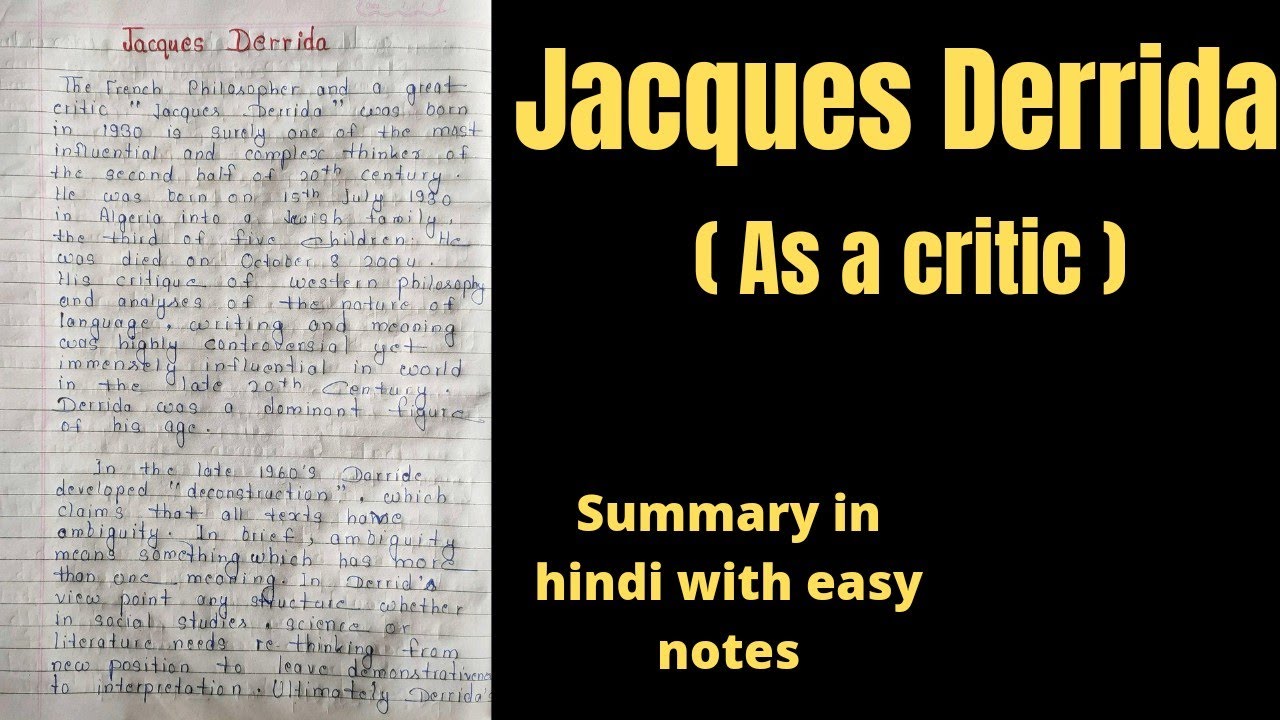 Jacques Derrida
The French Philosopher and a great
critic "Jacques Derrida" was born
in 1930 is surely one of the most
influential and complex thinker of
the second half of 20th century.
He was born on 15th July 1930
in Algeria into a Jewish family,
the third of five children. He
was died on October 8 2004.
His critique of western philosophy
and analyses of the nature of
language, writing and meaning
was highly controversial yet
immensely influential in world
in the late 20th Century.
Derrida was a dominant figure
of his age.
In the late 1960's Darride
developed "deconstruction", which
claims that all texts have
ambiguity. In brief, ambiguity
means something which has more
than one meaning. In Derrid's
view point any structure whether
in social studies, science or
literature needs re-thinking from
new position to leave demonstrativenes
to interpretation. Ultimately Derrida's
Jacques Derrida
( As a critic )
Summary in
hindi with easy
notes